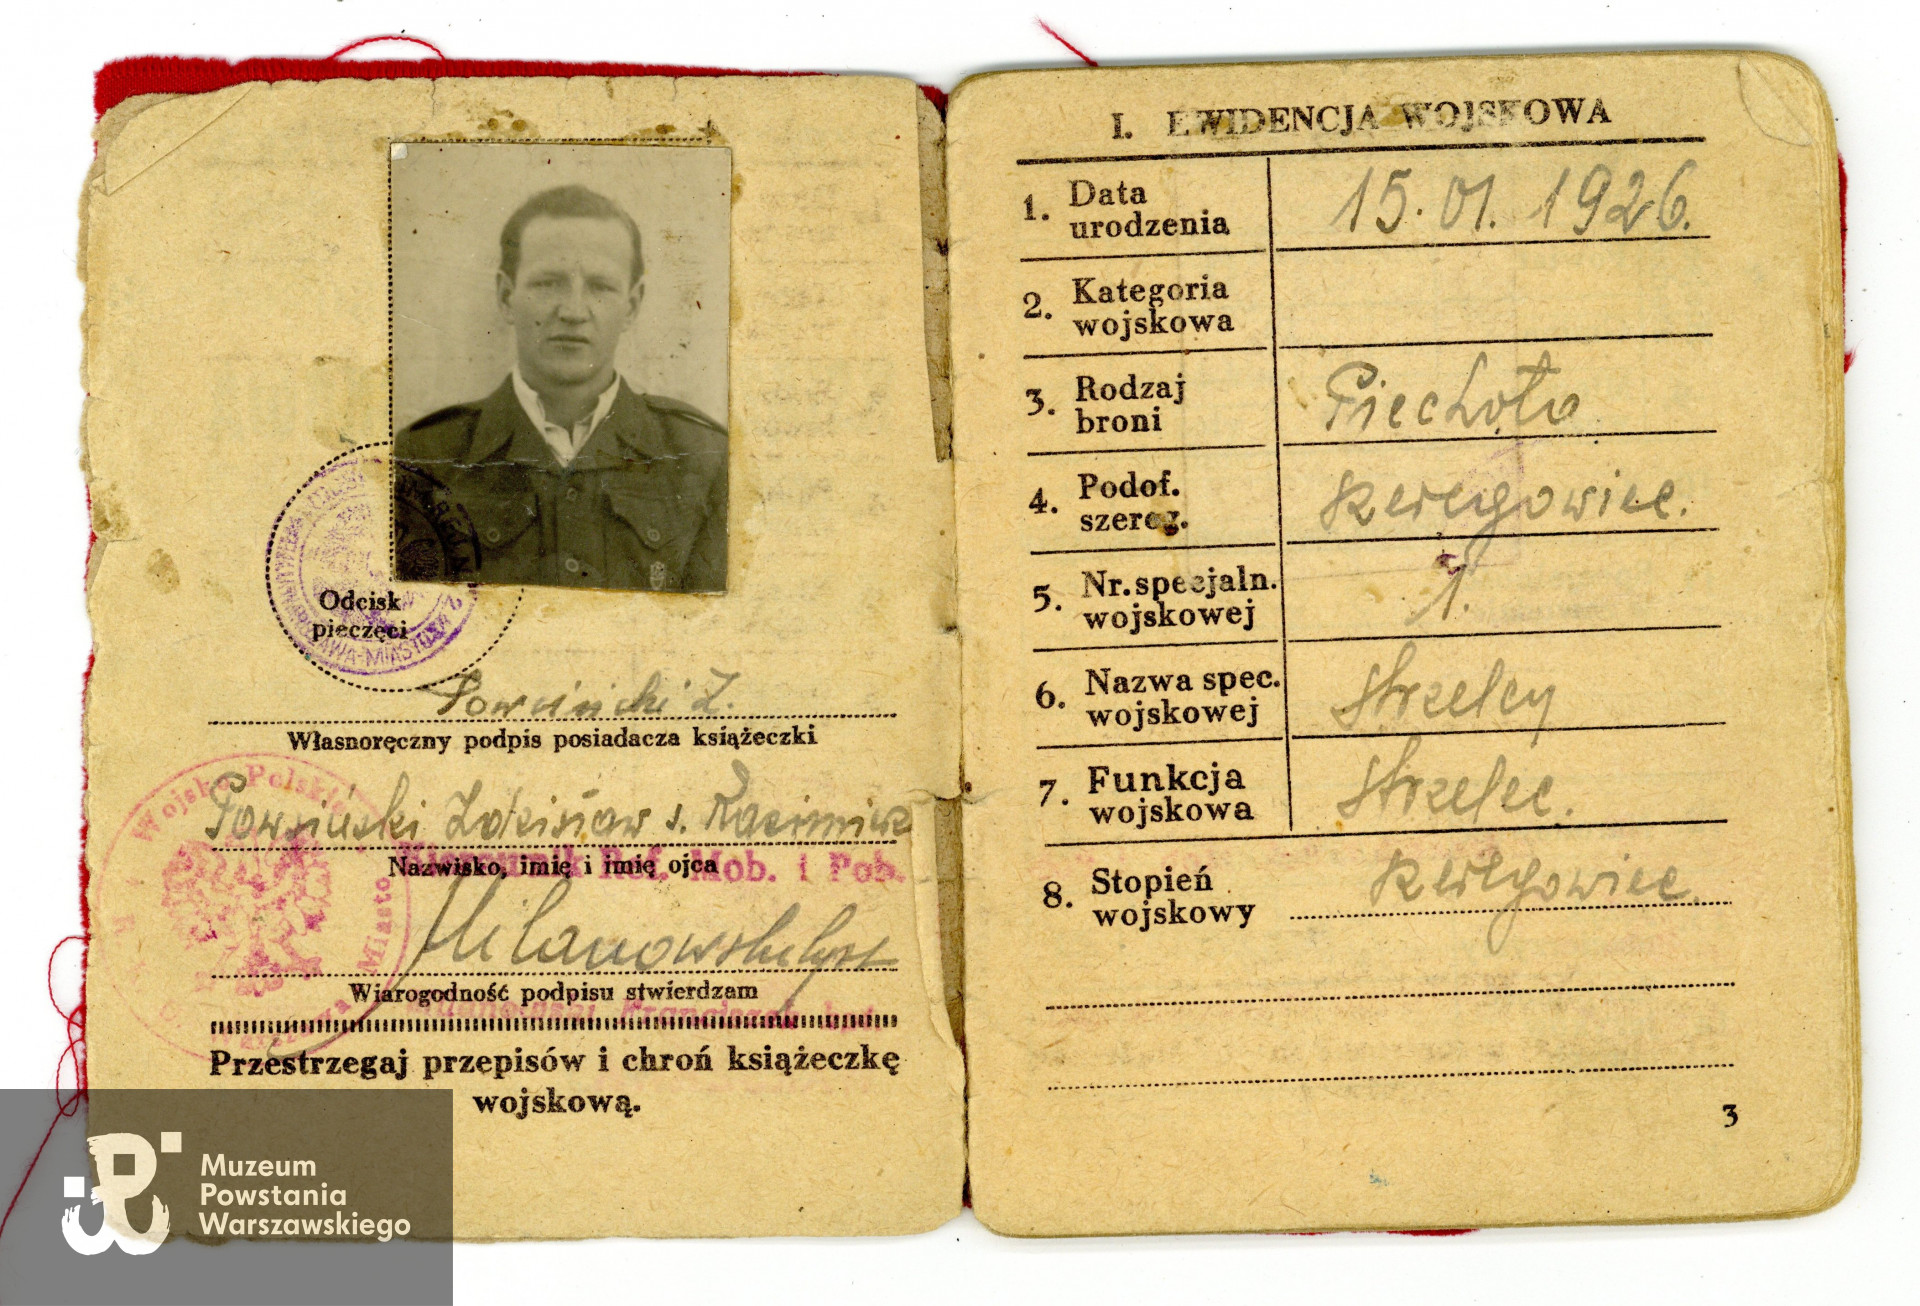 Odcisk
pieczęci
WARSZAWA-MIASTO
Powsiński Z.
Własnoręczny podpis posiadacza książeczki
Wojsko Polskie
Miasto
Powsiński Zdzisław s. Kazimierz
Kierownik Ref. Mob. i Pob.
Nazwisko, imię i imię ojca
Milanowski kpt
Wiarogodność podpisu stwierdzam
Milanowski Franciszek kpt.
Przestrzegaj przepisów i chroń książeczkę
wojskową.
I. EWIDENCJA WOJSKOWA
1. Data
urodzenia
15.01.1926.
2. Kategoria
wojskowa
3. Rodzaj
broni
Piechota
4. Podof.
szereg.
szeregowiec.
5. Nr. specjaln.
wojskowej
1.
6. Nazwa spec.
wojskowej
strzelcy
7. Funkcja
wojskowa
strzelec.
8. Stopień
wojskowy
szeregowiec.
3
Muzeum
Powstania
Warszawskiego